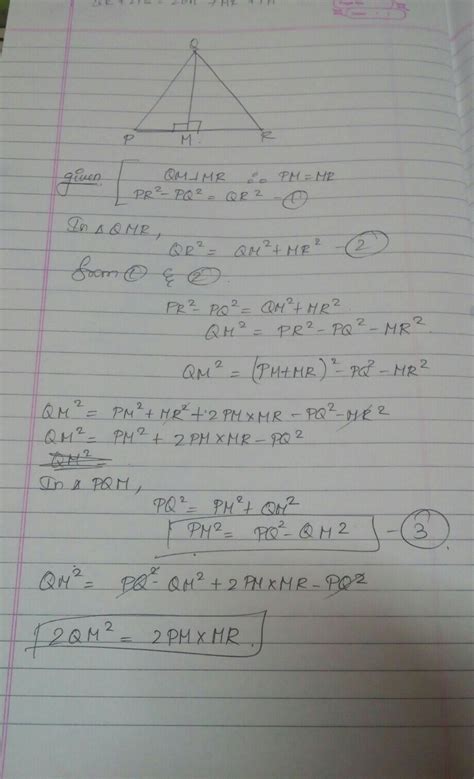 Q
P M. R
given QM⊥MR ∴ PM = MR
PR² - PQ² = QR² - ①
In △ QMR,
QR² = QM² + MR² - ②
from ① & ②
PR² - PQ² = QM² + MR²
QM² = PR² - PQ² - MR².
QM² = (PM+MR)² - PQ² - MR²
QM² = PM² + MR² + 2PM×MR - PQ² - MR²
QM² = PM² + 2PM×MR - PQ²
QM² =
In △ PQM,
PQ² = PM² + QM²
PM² = PQ² - QM² - ③
QM² = PQ² - QM² + 2PM×MR - PQ²
2QM² = 2PM×MR.